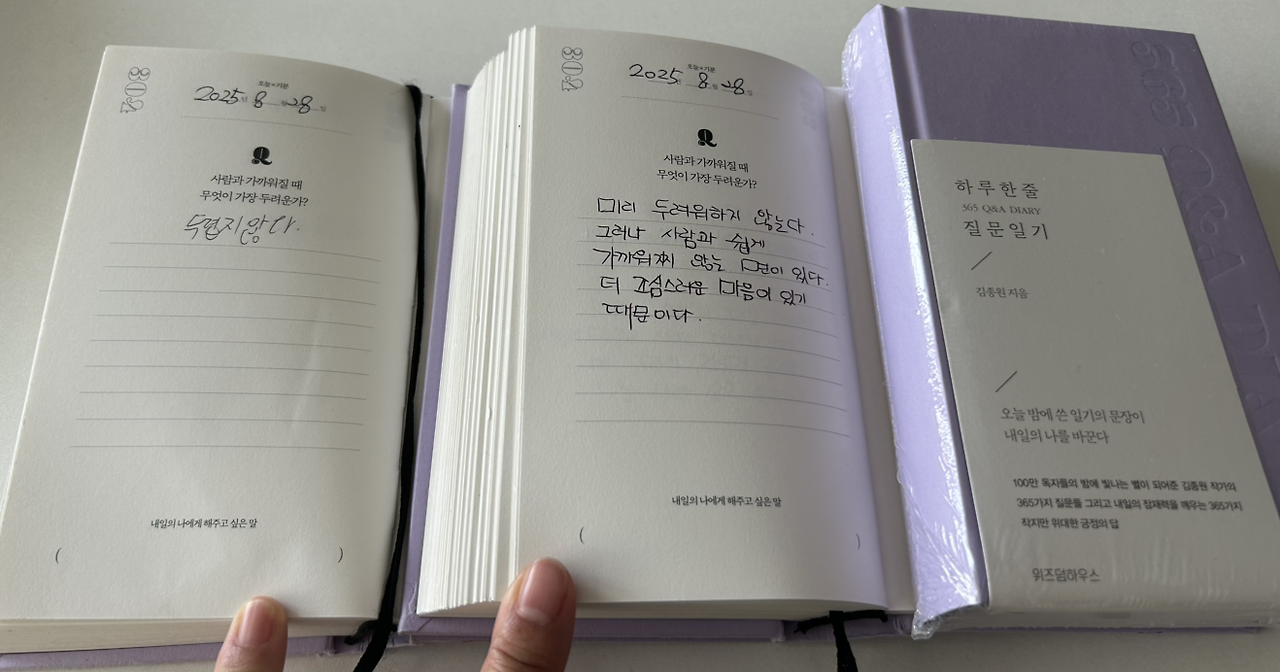 오늘×기분
2025년 8월 28일
Q
사람과 가까워질 때
무엇이 가장 두려운가?
두렵지않다.
내일의 나에게 해주고 싶은 말
( )
오늘×기분
2025년 8월 28일
Q
사람과 가까워질 때
무엇이 가장 두려운가?
미리 두려워하지 않는다.
그러나 사람과 쉽게
가까워찌 않는 면이 있다.
더 조심스러운 마음이 있기
때문이다.
내일의 나에게 해주고 싶은 말
( )
365 Q&A DIA
하루 한 줄
365 Q&A DIARY
질문 일기
김종원 지음
오늘 밤에 쓴 일기의 문장이
내일의 나를 바꾼다
100만 독자들의 밤에 빛나는 별이 되어준 김종원 작가의
365가지 질문들 그리고 내일의 잠재력을 깨우는 365가지
작지만 위대한 긍정의 답
위즈덤하우스